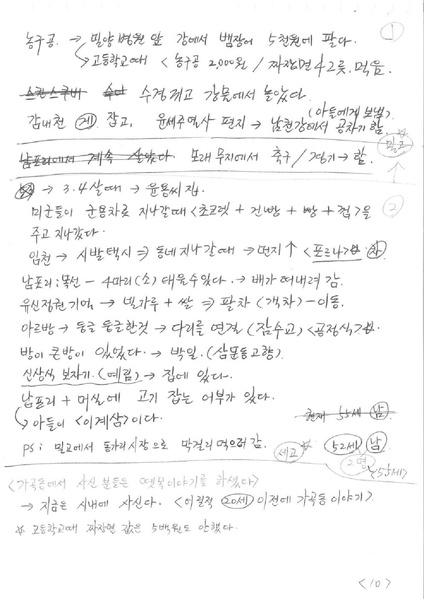 농구공. → 밀양병원 앞 강에서 뱀장어 5천원에 팔다. ①
↳ 고등학교때 < 농구공 2,000원 / 짜장면 4그릇. 먹음.
수경 끼고 강물에서 놀았다.
감내천 게 잡고, 윤세주여사 편지 → 남천강에서 공차기 함. (아들에게 보냄)
남포리에서 계속 살았다. 모래 무지에서 축구 / 경기 → 함.
→ 3.4살때 → 윤용씨집. ②
미군들이 군용차로 지나갈때 <초코렛 + 건빵 + 빵 + 껌>을
주고 지나갔다.
임천 → 시발택시 ⇒ 동네 지나갈때 → 먼지 ↑ 차
남포리: 목선 - 4마리(소) 태울수있다. → 배가 떠내려 감.
유신정권 기억 → 밀가루 + 쌀 ⇒ 팔차 (객차) - 이동.
아르방 → 둥글 둥글한것 → 다리를 연결 (잠수교)
방이 큰방이 있었다. → 박일.
신상식 보자기. (예림) → 집에 있다.
남포리 + 머실에 고기 잡는 어부가 있다.
↳ 아들이 <이계삼>이다.
현재 55세 남
ps: 밀교에서 동가리시장으로 막걸리 먹으러 감. 세고 52세 남
2명 <55세>
<가곡동에서 사신 분들은 옛날이야기를 하셨다>
→ 지금은 시내에 사신다. <어릴적 20세 이전에 가곡동 이야기>
☆ 고등학교때 짜장면 값은 5백원도 안했다.
<10>